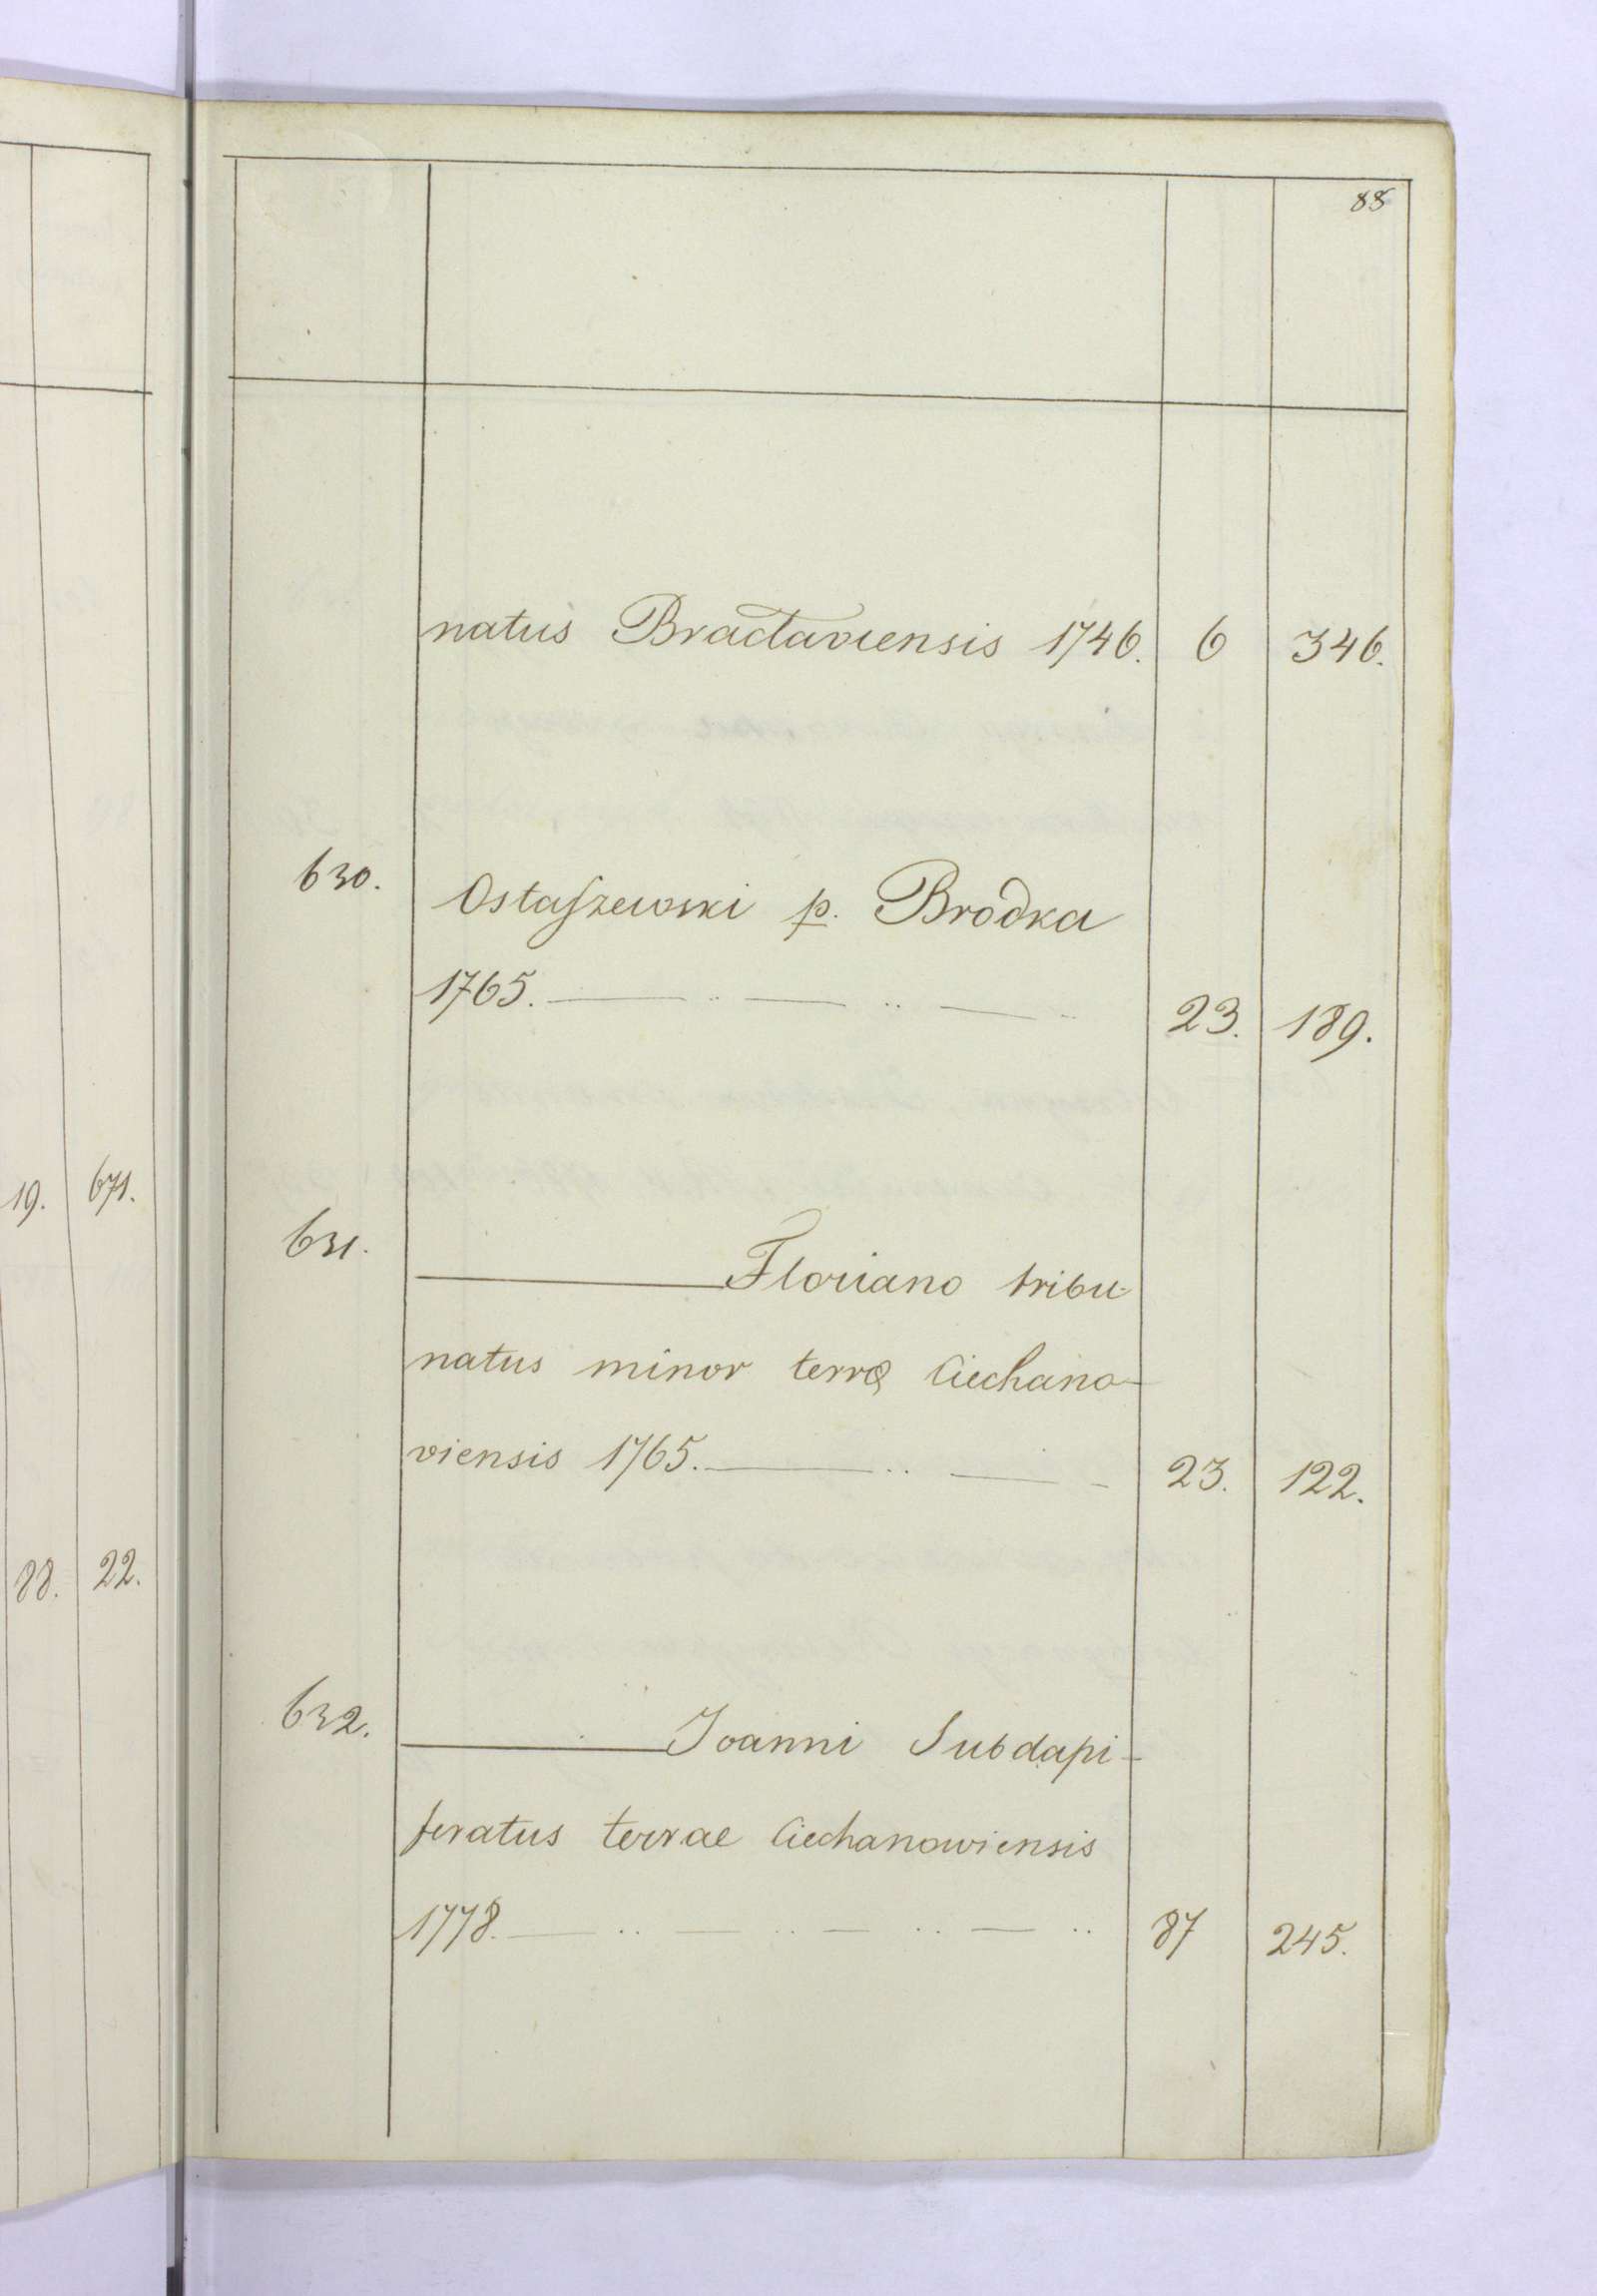 88
natus Braclaviensis 1746. 6 346.
630. Ostaszewski p. Brodka
1765. 23. 189.
19. 671.
631. Floriano tribu-
natus minor terrę Ciechano-
viensis 1765. 23. 122.
88. 22.
632. Joanni Subdapi-
feratus terrae Ciechanowiensis
1778. 87 245.